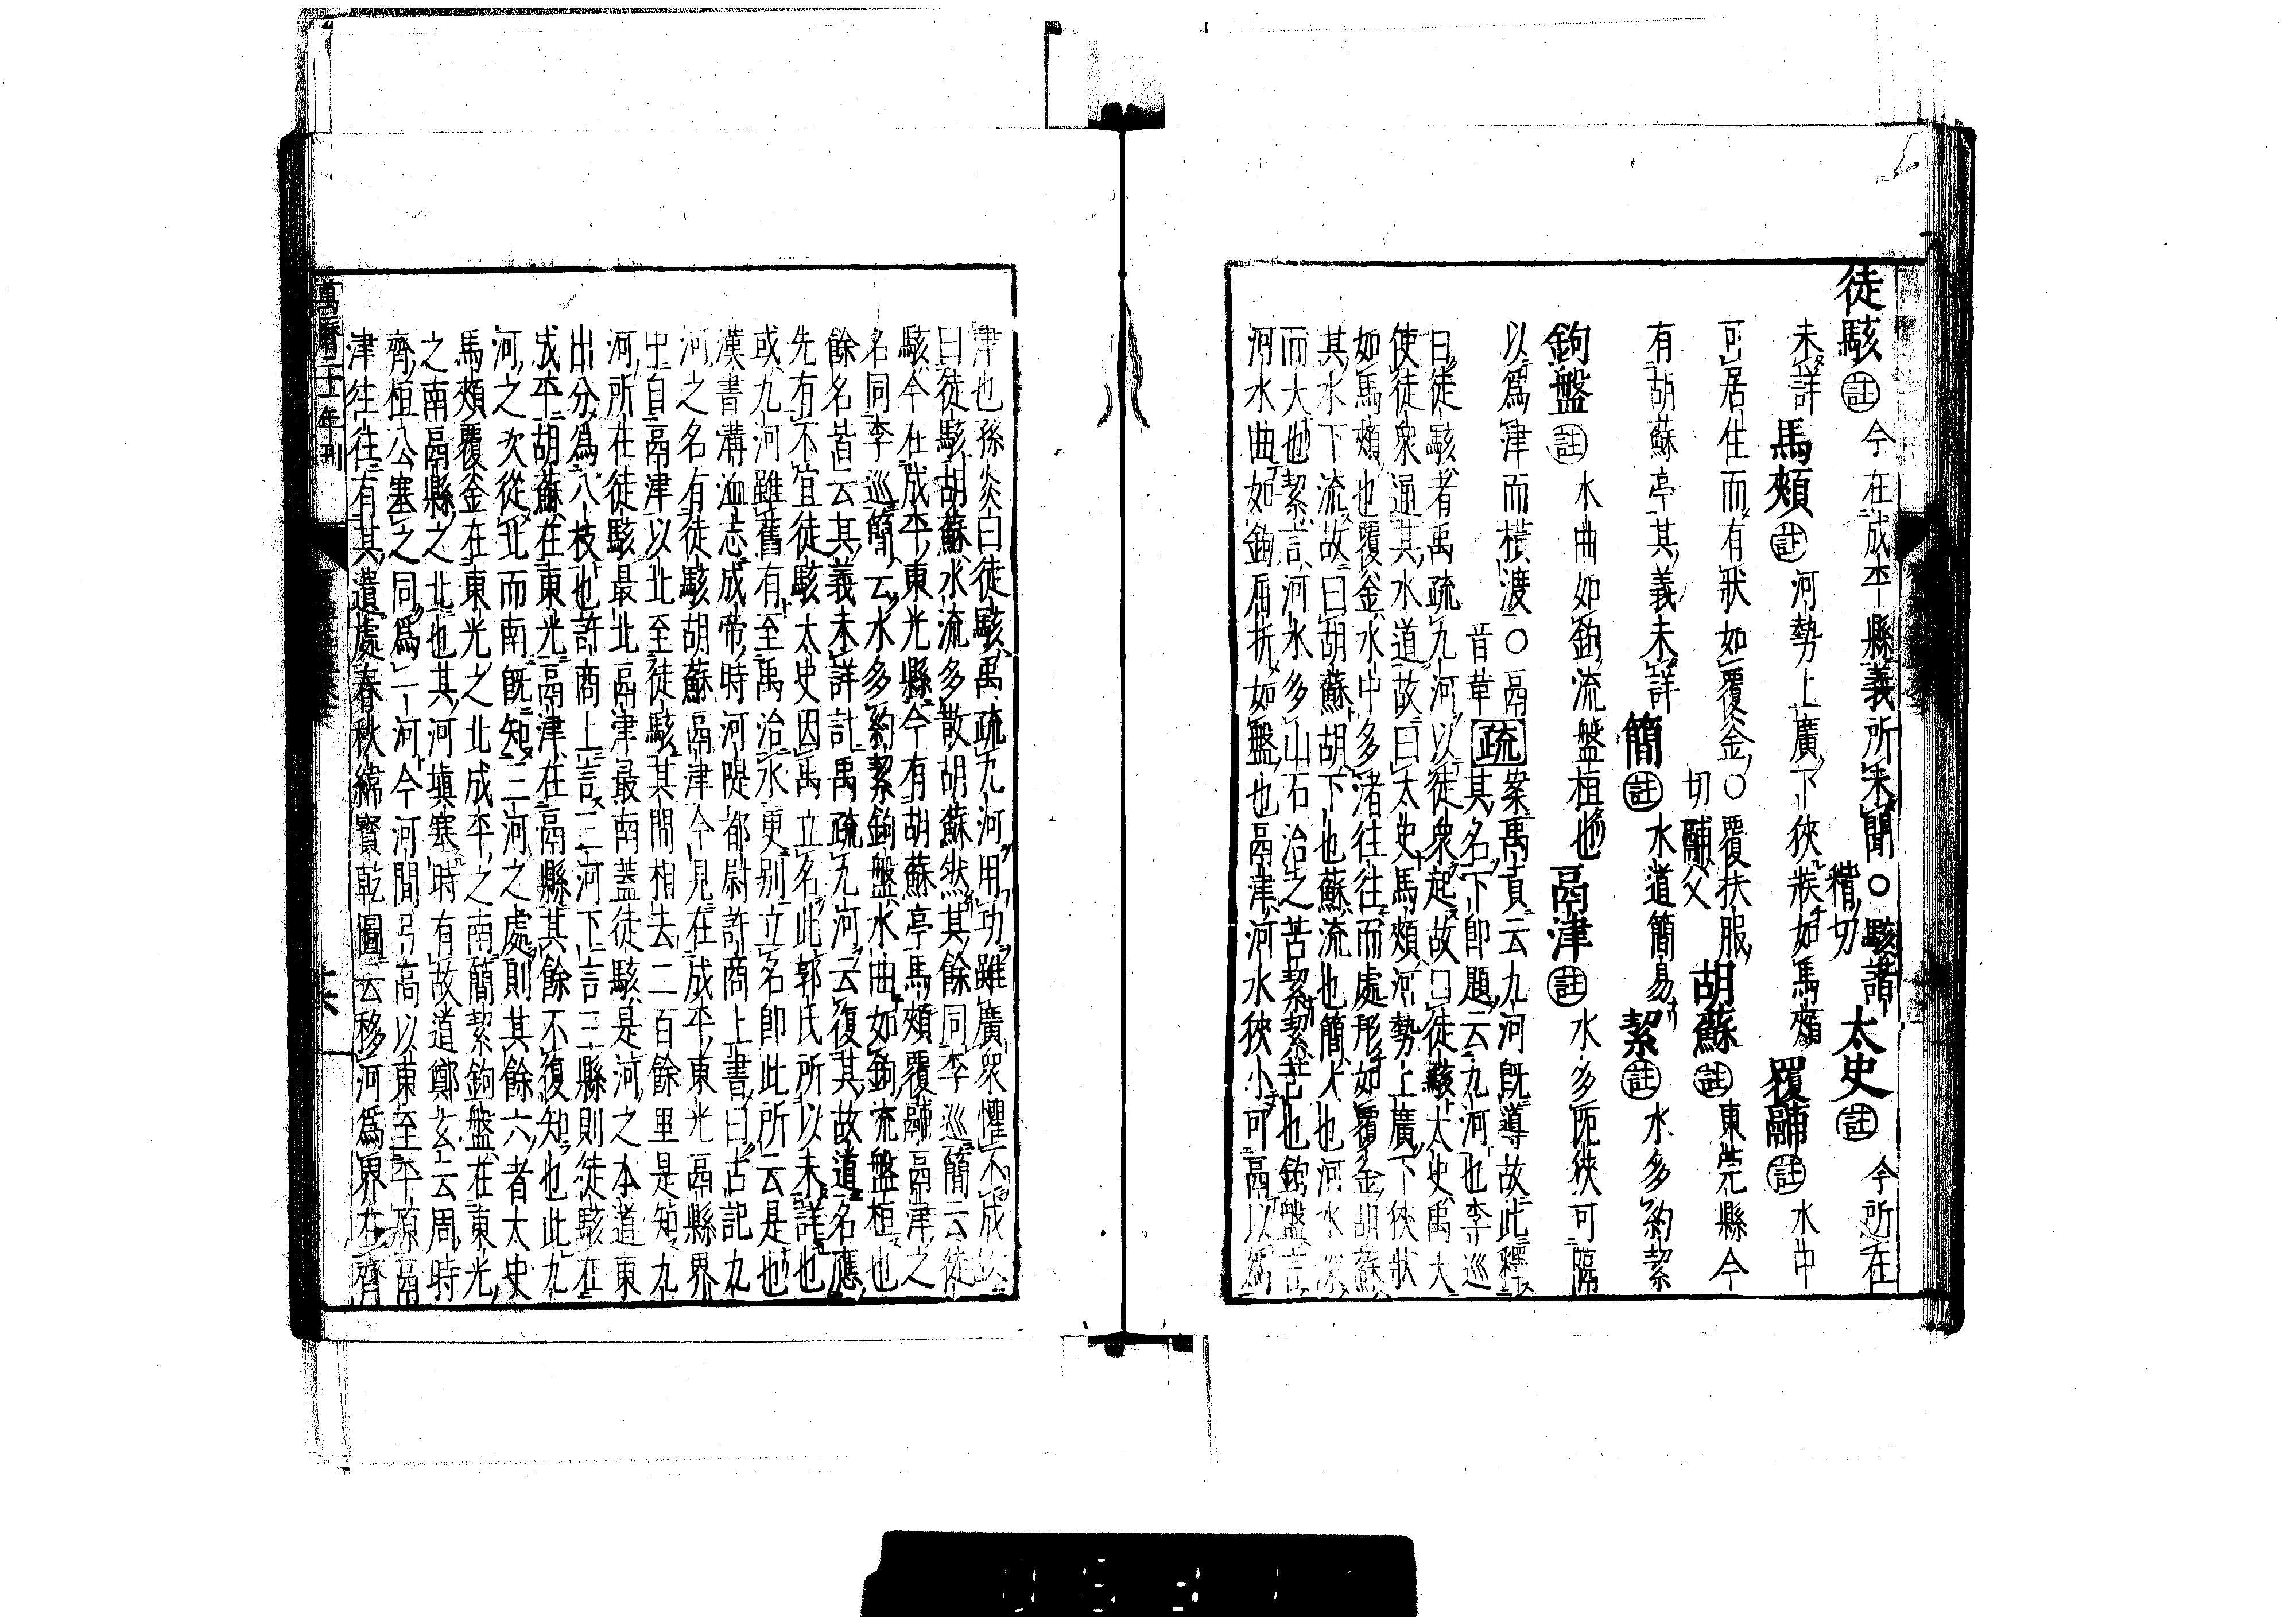 徒駭註今在成平縣義所未聞〇駭諧楷切太史註今所在
未詳馬頰註河勢上廣下狹狀如馬頰覆鬴註水中
可居住而有狀如覆釜〇覆扶服切鬴父胡蘇註東莞縣今
有胡蘇亭其義未詳簡註水道簡易絜註水多約絜
鉤盤註水曲如鉤流盤桓也鬲津註水多阨狹可隔
以爲津而橫渡〇鬲音革疏案禹貢云九河旣導故此釋
其名下即題云九河也李巡
曰徒駭者禹疏九河以徒衆起故曰徒駭太史禹大
使徒衆通其水道故曰太史馬頰河勢上廣下狹狀
如馬頰也覆釜水中多渚往往而處形如覆釜胡蘇
其水下流故曰胡蘇胡下也蘇流也簡大也河水深
而大也絜言河水多山石治之苦絜絜苦也鉤盤言
河水曲如鉤屈折如盤也鬲津河水狹小可鬲以爲
津也孫炎曰徒駭禹疏九河用功雖廣衆懼不成故
曰徒駭胡蘇水流多散胡蘇狀然其餘同李巡簡云徒
駭今在成平東光縣今有胡蘇亭馬頰覆鬴鬲津之
名同李巡簡云水多約絜鉤盤水曲如鉤流盤桓也
餘名皆云其義未詳計禹疏九河云復其故道名應
先有不宜徒駭太史因禹立名此郭氏所以未詳也
或九河雖舊有至禹治水更别立名即此所云是也
漢書溝洫志成帝時河隄都尉許商上書曰古記九
河之名有徒駭胡蘇鬲津今見在成平東光鬲縣界
中自鬲津以北至徒駭其間相去二百餘里是知九
河所在徒駭最北鬲津最南蓋徒駭是河之本道東
出分爲八枝也許商上言三河下言三縣則徒駭在
成平胡蘇在東光鬲津在鬲縣其餘不復知也此九
河之次從北而南旣知三河之處則其餘六者太史
馬頰覆釜在東光之北成平之南簡絜鉤盤在東光
之南鬲縣之北也其河塡塞時有故道鄭玄云周時
齊桓公塞之同爲一河今河間弓高以東至平原鬲
津往往有其遺處春秋緯寳乾圖云移河爲界在齊
萬曆二十一年刊